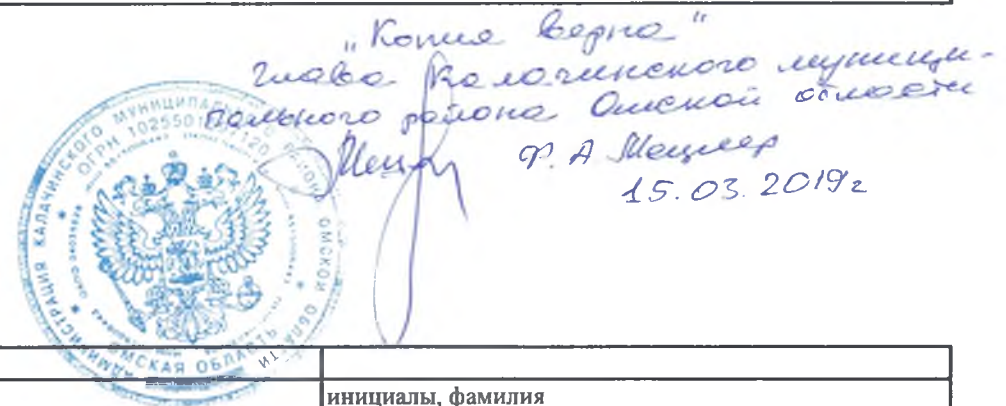 "Копия верна"
Глава Калачинского муници-
пального района Омской области
Ф. А Мецлер
15.03.2019г
АДМИНИСТРАЦИЯ КАЛАЧИНСКОГО МУНИЦИПАЛЬНОГО РАЙОНА ОМСКОЙ ОБЛАСТИ
ОГРН
ОМСКАЯ ОБЛАСТЬ
инициалы, фамилия